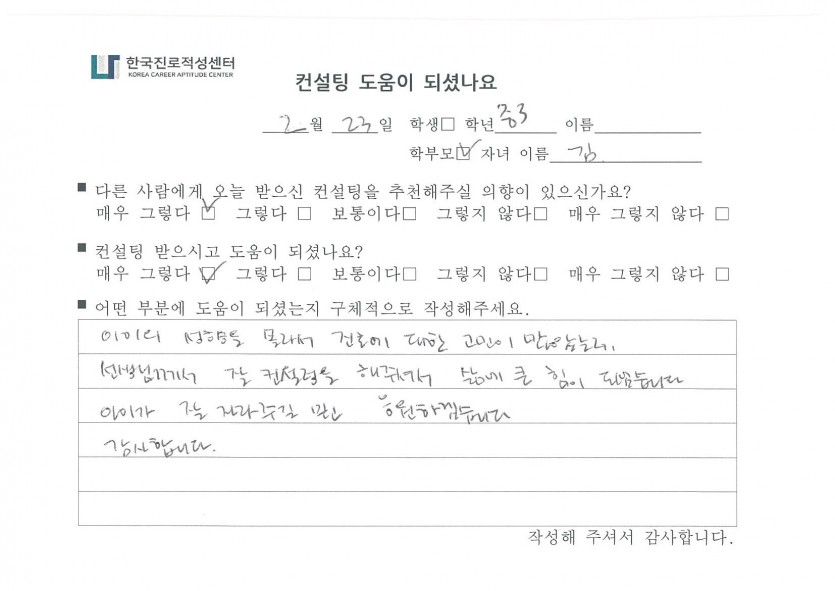 한국진로적성센터
KOREA CAREER APTITUDE CENTER
컨설팅 도움이 되셨나요
2월 23일 학생□ 학년 중3 이름
학부모☑ 자녀 이름 김
■ 다른 사람에게 오늘 받으신 컨설팅을 추천해주실 의향이 있으신가요?
매우 그렇다 ☑ 그렇다 □ 보통이다□ 그렇지 않다□ 매우 그렇지 않다 □
■ 컨설팅 받으시고 도움이 되셨나요?
매우 그렇다 ☑ 그렇다 □ 보통이다□ 그렇지 않다□ 매우 그렇지 않다 □
■ 어떤 부분에 도움이 되셨는지 구체적으로 작성해주세요.
아이의 성향을 몰라서 진로에 대한 고민이 많았는데,
선생님께서 잘 컨설팅을 해주셔서 큰 힘이 되었습니다
아이가 잘 자라주길 믿고 응원하겠습니다
감사합니다.
작성해 주셔서 감사합니다.